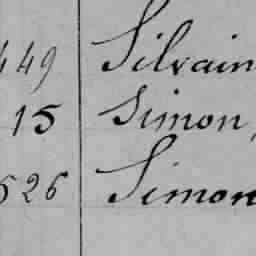 449 Silvain
15 Simon,
526 Simon